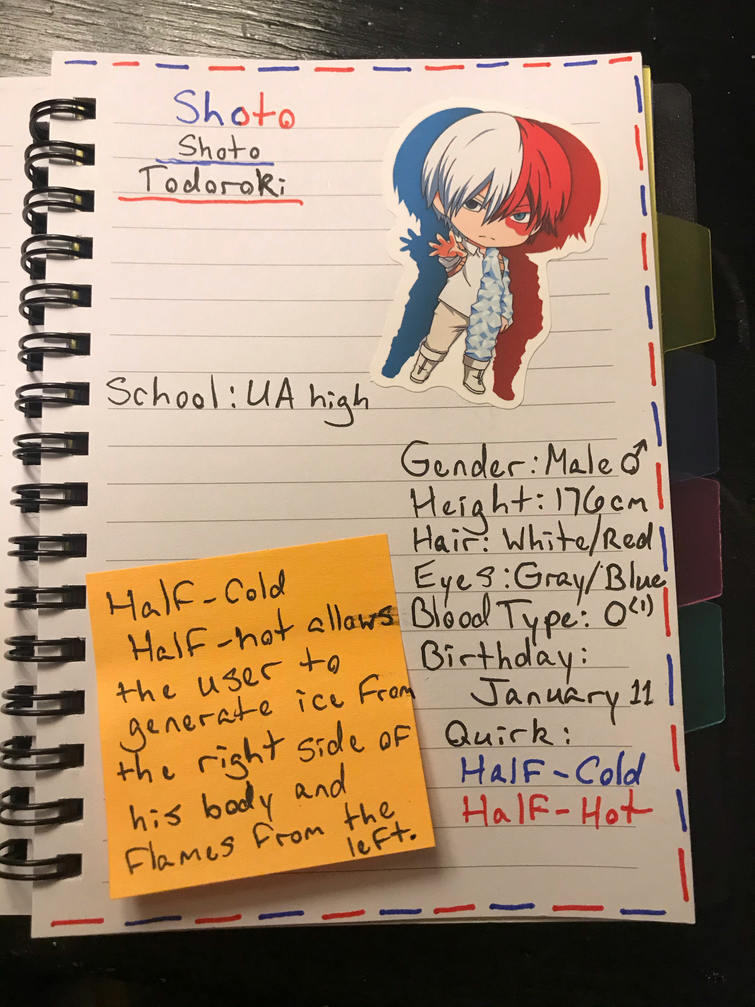 Shoto
Shoto
Todoroki
School: UA high
Gender: Male ♂
Height: 176cm
Hair: White/Red
Eyes: Gray/Blue
Blood Type: O(1)
Birthday:
January 11
Quirk:
Half-Cold
Half-Hot
Half-Cold
Half-hot allows
the user to
generate ice from
the right side of
his body and
flames from the
left.